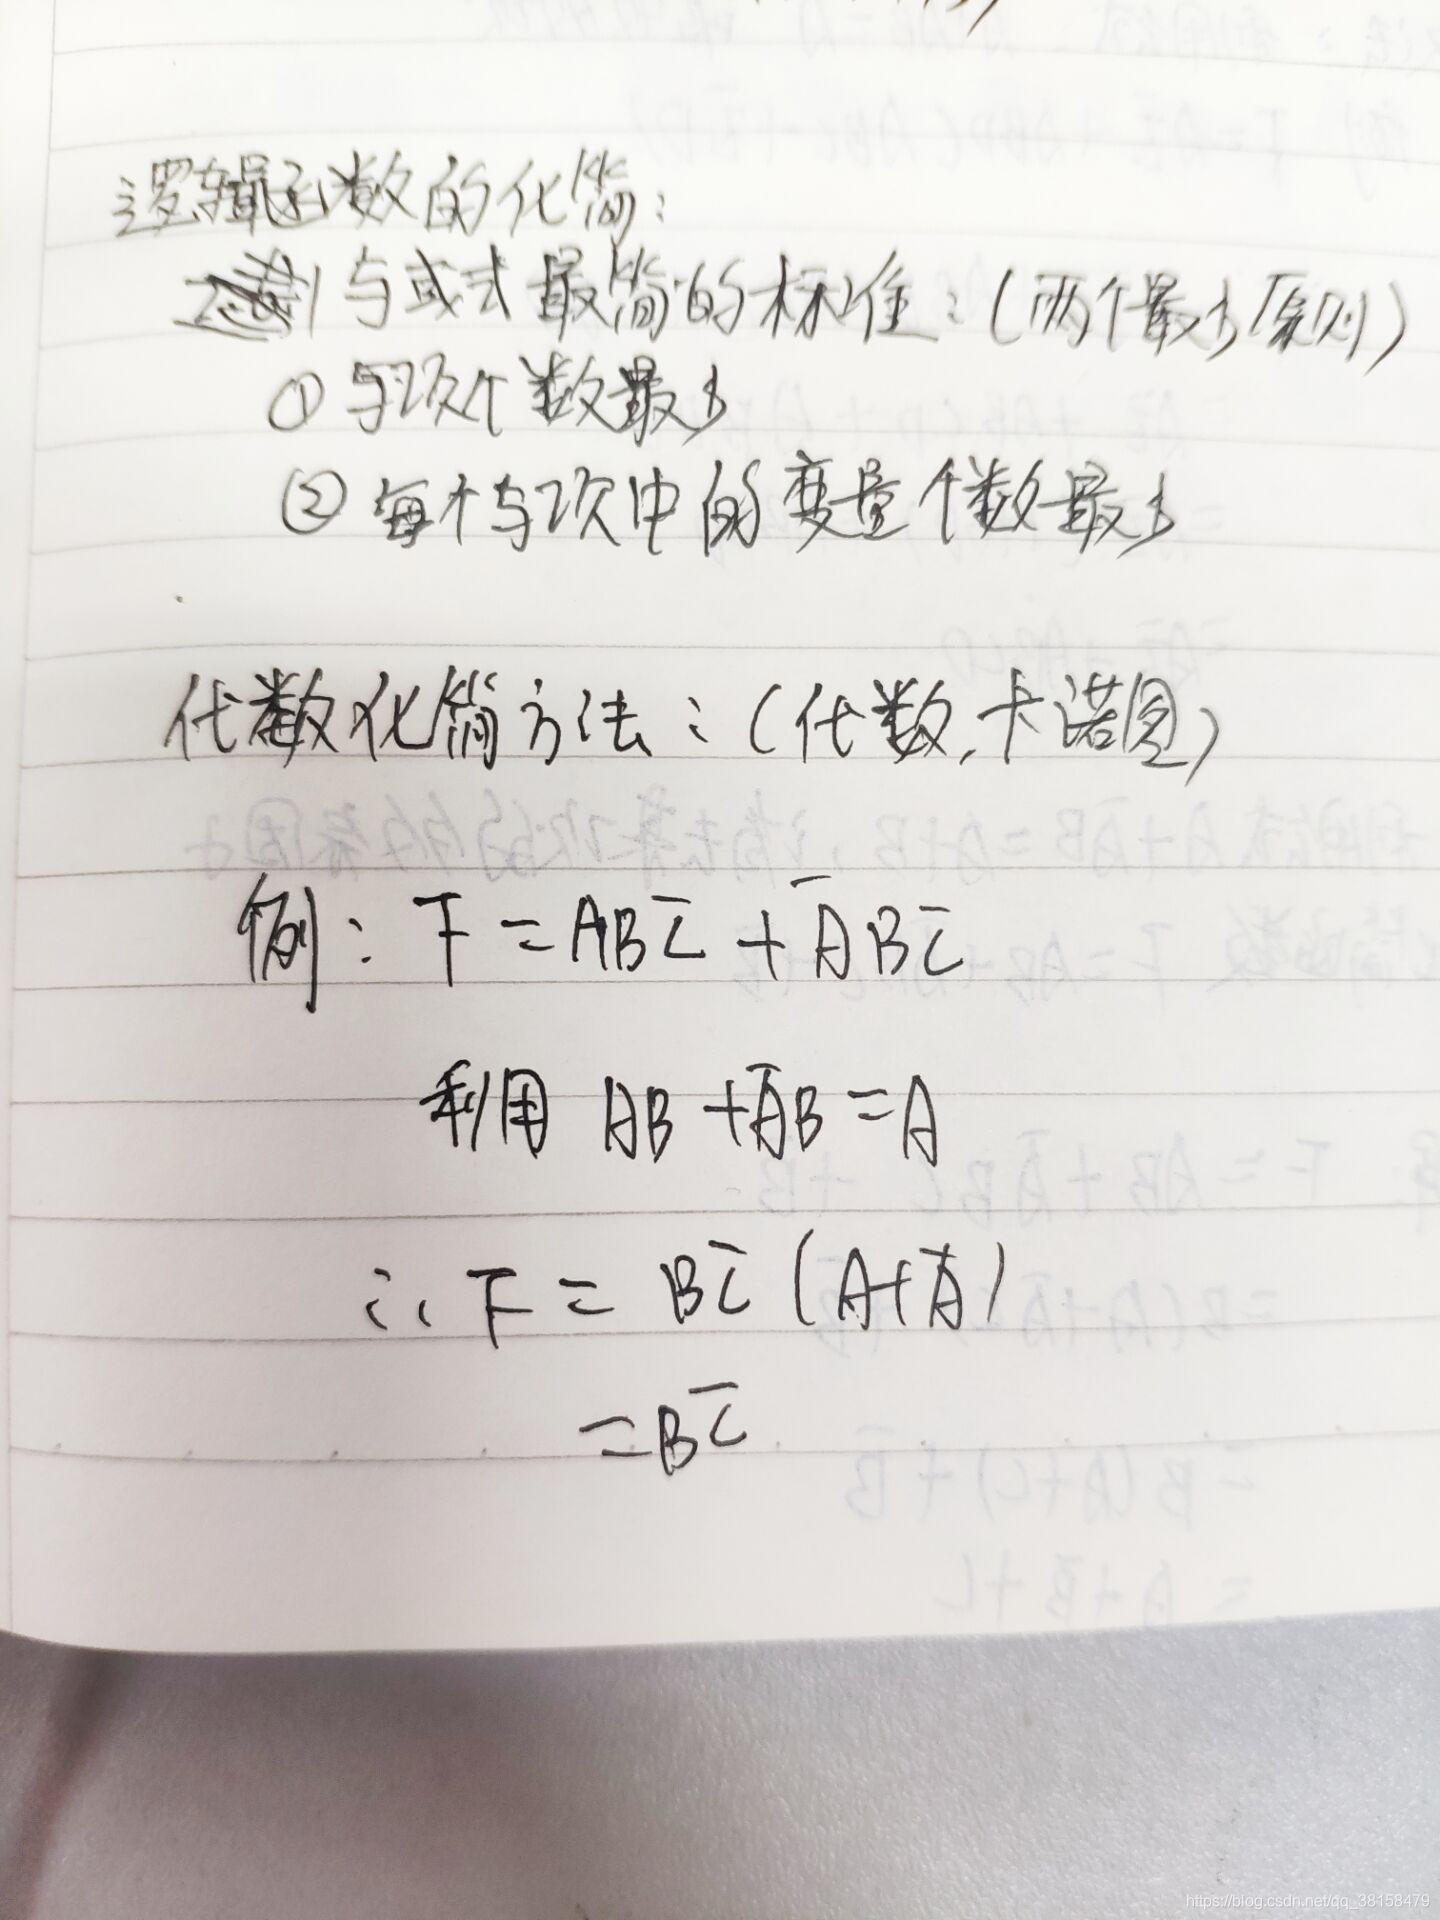 逻辑函数的化简:
与或式最简的标准:(两个最少原则)
① 与项个数最少
② 每个与项中的变量个数最少
代数化简方法:(代数,卡诺图)
例: F = ABC̅ + A̅BC̅
利用 AB + A̅B = A
∴ F = BC̅ (A+A̅)
= BC̅
https://blog.csdn.net/qq_38158479